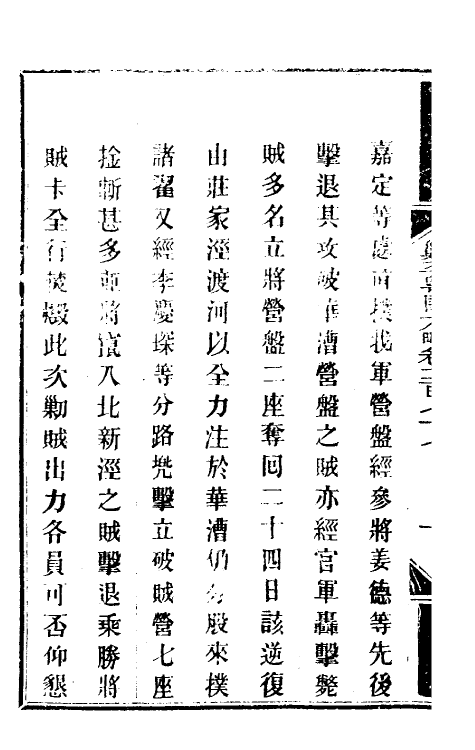 嘉定等處直撲我軍營盤經參將姜德等先後
擊退其攻破華漕營盤之賊亦經官軍轟擊斃
賊多名立將營盤二座奪回二十四日該逆復
山莊家涇渡河以全力注於華漕仍分股來撲
諸翟又經李慶琛等分路抵擊立破賊營七座
擒斬甚多並將竄入北新涇之賊擊退乘勝將
賊卡全行焚燬此次勦賊出力各員可否仰懇